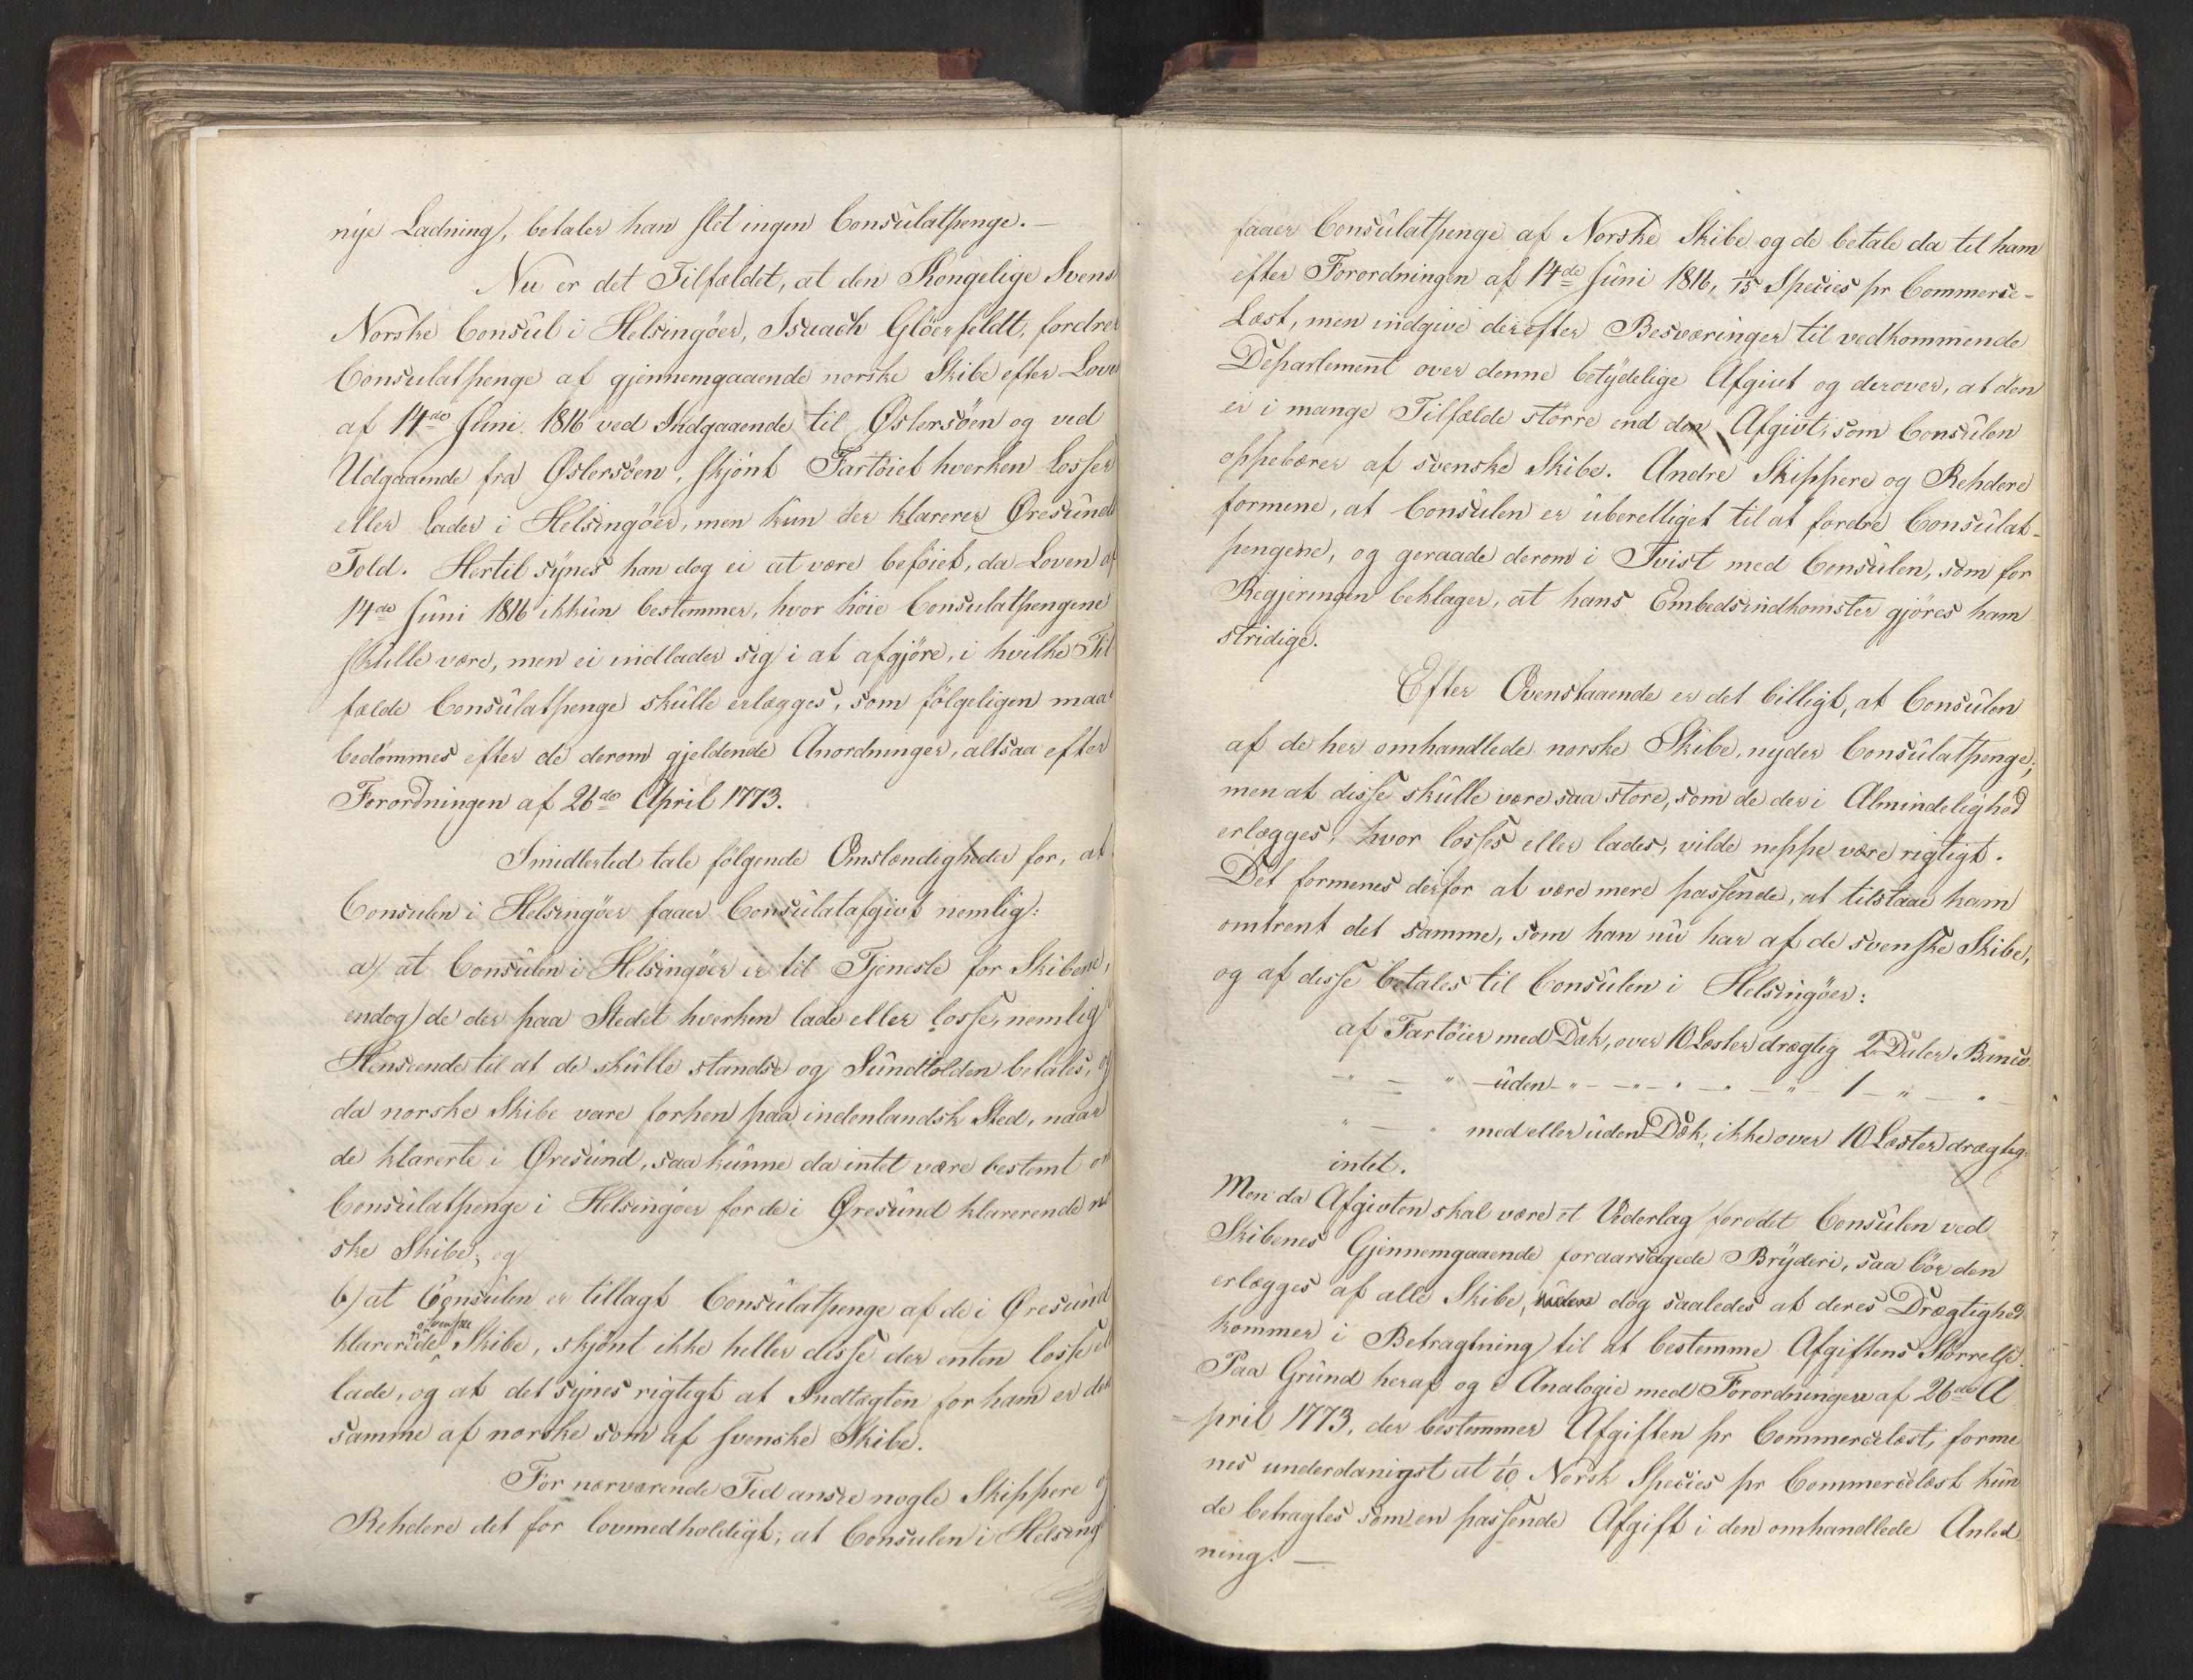 nye Ladning, betaler han slet ingen Consulatpenge. —
Nu er det Tilfældet, at den Kongelige Svens
Norske Consul i Helsingöer, Isaach Glöerfeldt, fordrer
Consulatpenge af gjennemgaaende norske Skibe efter Love
af 14de Juni 1816 ved Indgaaende til Østersöen og ved
Udgaaende fra Østersöen, skjönt Fartöiet hverken losser
eller lader i Helsingöer, men kun der klarerer Øresunds
Told. Hertil synes han dog ei at være beföiet, da Loven af
14de Juni 1816 ikkun bestemmer, hvor höie Consulatpengene
skulle være, men ei indlader sig i at afgjöre, i hvilke Til
fælde Consulatpenge skulle erlægges, som fölgeligen maa
bedömmes efter de derom gjeldende Anordninger, altsaa efter
Forordningen af 26de April 1773.
Imidlertid tale fölgende Omstændigheder for, at
Consulen i Helsingöer faaer Consulatafgivt nemlig:
a) at Consulen i Helsingöer er til Tjeneste for Skibene,
endog de der paa Stedet hverken lade eller losse, nemlig
Henseende til at de skulle standse og Sundtolden betales, og
da norske Skibe vare forhen paa indenlandsk Sted, naar
de klarerte i Øresund, saa kunne da intet være bestemt om
Consulatpenge i Helsingöer for de i Øresund klarerende nor
ske Skibe; og
b) at Consulen er tillagt Consulatpenge af de i Øresund
svenske
klarerede Skibe, skjönt ikke heller disse der enten losse el
lade, og at det synes rigtigt at Indtægten for ham er den
samme af norske som af svenske Skibe.
For nærværende Tid ansee nogle Skippere og
Rehdere det for lovmedholdigt, at Consulen i Helsing
faaer Consulatpenge af Norske Skibe og de betale da til ham
efter Forordningen af 14de Juni 1816, 1/15 Species pr Commerce-
Læst, men indgive derefter Besværinger til vedkommende
Departement over denne betydelige Afgivt og derover, at den
er i mange Tilfælde större end den Afgivt, som Consulen
oppebærer af svenske Skibe. Andre Skippere og Rehdere
formene, at Consulen er uberettiget til at fordre Consulat-
pengene, og geraade derom i Tvist med Consulen, som for
Regjeringen beklager, at hans Embedsindkomster gjöres ham
stridige.
Efter Ovenstaaende er det billigt, at Consulen
af de her omhandlede norske Skibe, nyder Consulatpenge;
men at disse skulle være saa store, som de der i Almindelighed
erlægges, hvor losses eller lades, vilde neppe være rigtigt.
Det formenes derfor at være mere passende, at tilstaae ham
omtrent det samme, som han nu har af de svenske Skibe,
og af disse betales til Consulen i Helsingöer:
af Fartöier med Dæk, over 10 Læster drægtig 2 Daler Banco
" — " — uden — " — " — " — " — 1 — " — " —
" — " med eller uden Dæk, ikke over 10 Læster drægtig
intet.
Men da Afgivten skal være et Vederlag for det Consulen ved
Skibenes Gjennemgaaende foraarsagede Bryderi, saa bör den
erlægges af alle Skibe, dog saaledes at deres Drægtighed
kommer i Betragtning til at bestemme Afgiftens Störrelse.
Paa Grund heraf og i Analogie med Forordningen af 26de A
pril 1773, der bestemmer Afgiften pr Commercelæst, forme
nes underdanigst at 1/60 Norsk Species pr Commercelæst kun
de betragtes som en passende Afgift i den omhandlede Anled
ning. —